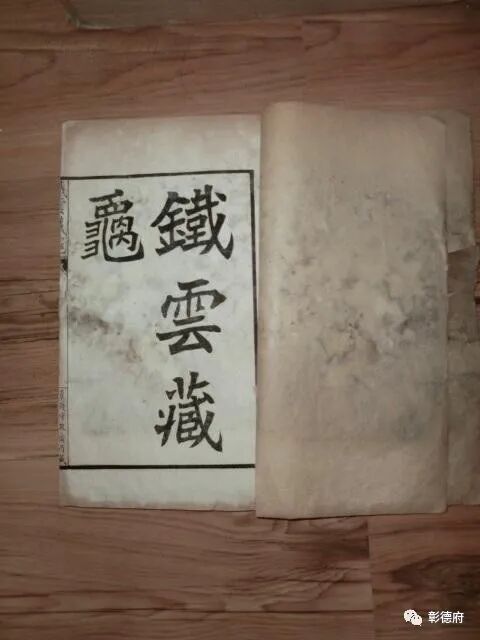 鐵雲藏
龜
彰德府